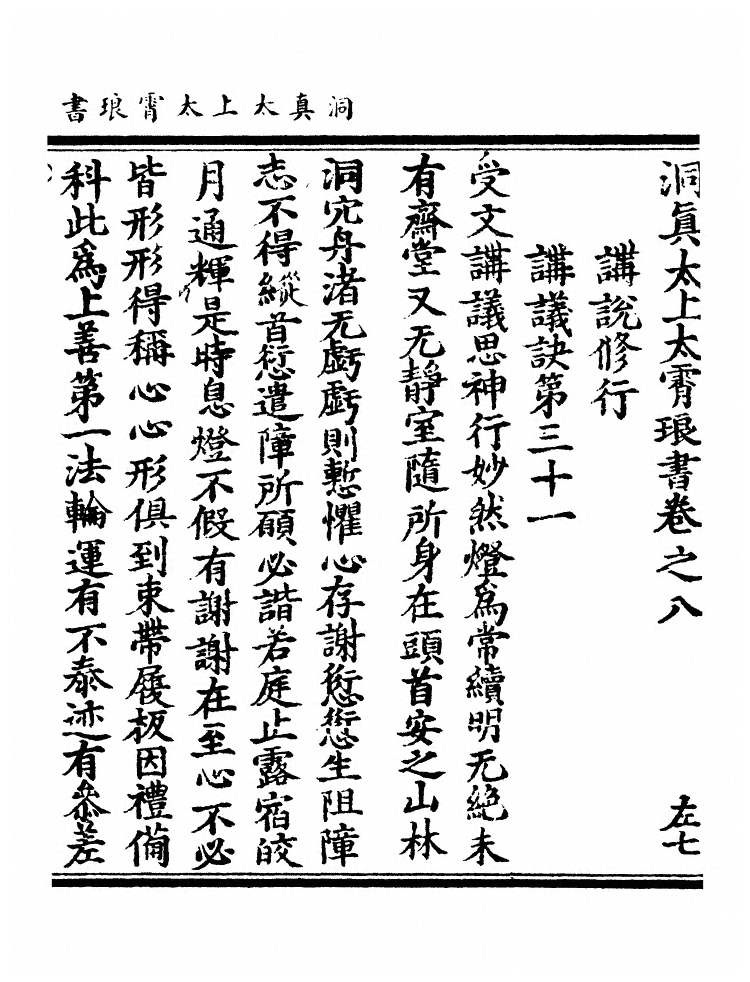 洞真太上太霄琅書
洞眞太上太霄琅書卷之八 左七
講說修行
講議訣第三十一
受文講議思神行妙然燈爲常續明无絶未
有齋堂又无靜室隨所身在頭首安之山林
洞穴舟渚无虧虧則慙懼心存謝愆愆生阻障
志不得縱首愆遣障所願必諧若庭止露宿皎
月通輝是時息燈不假有謝謝在至心不必
皆形形得稱心心形俱到束帶履板因禮備
科此爲上善第一法輪運有不泰迹有叅差